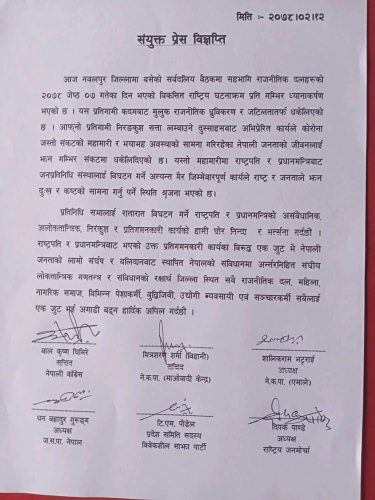 मिति :- २०७८।०२।१२
संयुक्त प्रेस विज्ञप्ति
आज नवलपुर जिल्लामा बसेको सर्वदलिय बैठकमा सहभागि राजनीतिक दलहरुको
२०७८ जेष्ठ ०७ गतेका दिन भएको विकसित राष्ट्रिय घटनाक्रम प्रति गम्भिर ध्यानाकर्षण
भएको छ । यस प्रतिगामी कदमबाट मुलुक राजनीतिक ध्रुविकरण र जटिलतातर्फ धकेलिएको
छ । आफ्नो प्रतिगामी निरङकुश सत्ता लम्बाउने दुस्साहसबाट अभिप्रेरित कार्यले कोरोना
जस्तो संकटको महामारी र भयाभह अवस्थाको सामना गरिरहेका नेपाली जनताको जीवनलाई
झन गम्भिर संकटमा धकेलिदिएको छ । यस्तो महामारीमा राष्ट्रपति र प्रधानमन्त्रिबाट
जनप्रतिनिधि संस्थालाई विघटन गर्ने अत्यन्त गैर जिम्मेवारपूर्ण कार्यले राष्ट्र र जनताले झन
दुःख र कष्टको सामना गर्नु पर्ने स्थिति श्रृजना भएको छ।
प्रतिनिधि सभालाई रातारात विघटन गर्ने राष्ट्रपति र प्रधानमन्त्रिको असंवैधानिक,
अलोकतान्त्रिक, निरंकुश र प्रतिगमनकारी कार्यको हामी घोर निन्दा र भर्त्सना गर्दछौ ।
राष्ट्रपति र प्रधानमन्त्रिबाट भएको उक्त प्रतिगमनकारी कार्यका विरुद्ध एक जुट भै नेपाली
जनताको लामो संर्घष र वलिदानबाट स्थापित नेपालको संविधानमा अर्न्तरनिहित संघीय
लोकतान्त्रिक गणतन्त्र र संविधानको रक्षार्थ जिल्ला स्थित सवै राजनीतिक दल, महिला,
नागरिक समाज, विभिन्न पेशाकर्मी, वुद्धिजिवी, उद्योगी ब्यवसायी एवं सञ्चारकर्मी सबैलाई
एक जुट भई अगाडी बढ्न हार्दिक अपिल गर्दछौ ।
बाल कृष्ण घिमिरे
सचिव
नेपाली काँग्रेस
मित्रशरण शर्मा (विहानी)
सचिव
ने.क.पा. (माओवादी केन्द्र)
शालिकराम भट्टराई
अध्यक्ष
ने.क.पा. (एमाले)
धन बहादुर गुरुङ्ग
अध्यक्ष
ज.स.पा. नेपाल
टि.एम. पौडेल
प्रदेश समिति सदस्य
विवेकशील साझा पार्टी
दिपक पाण्डे
अध्यक्ष
राष्ट्रिय जनमोर्चा